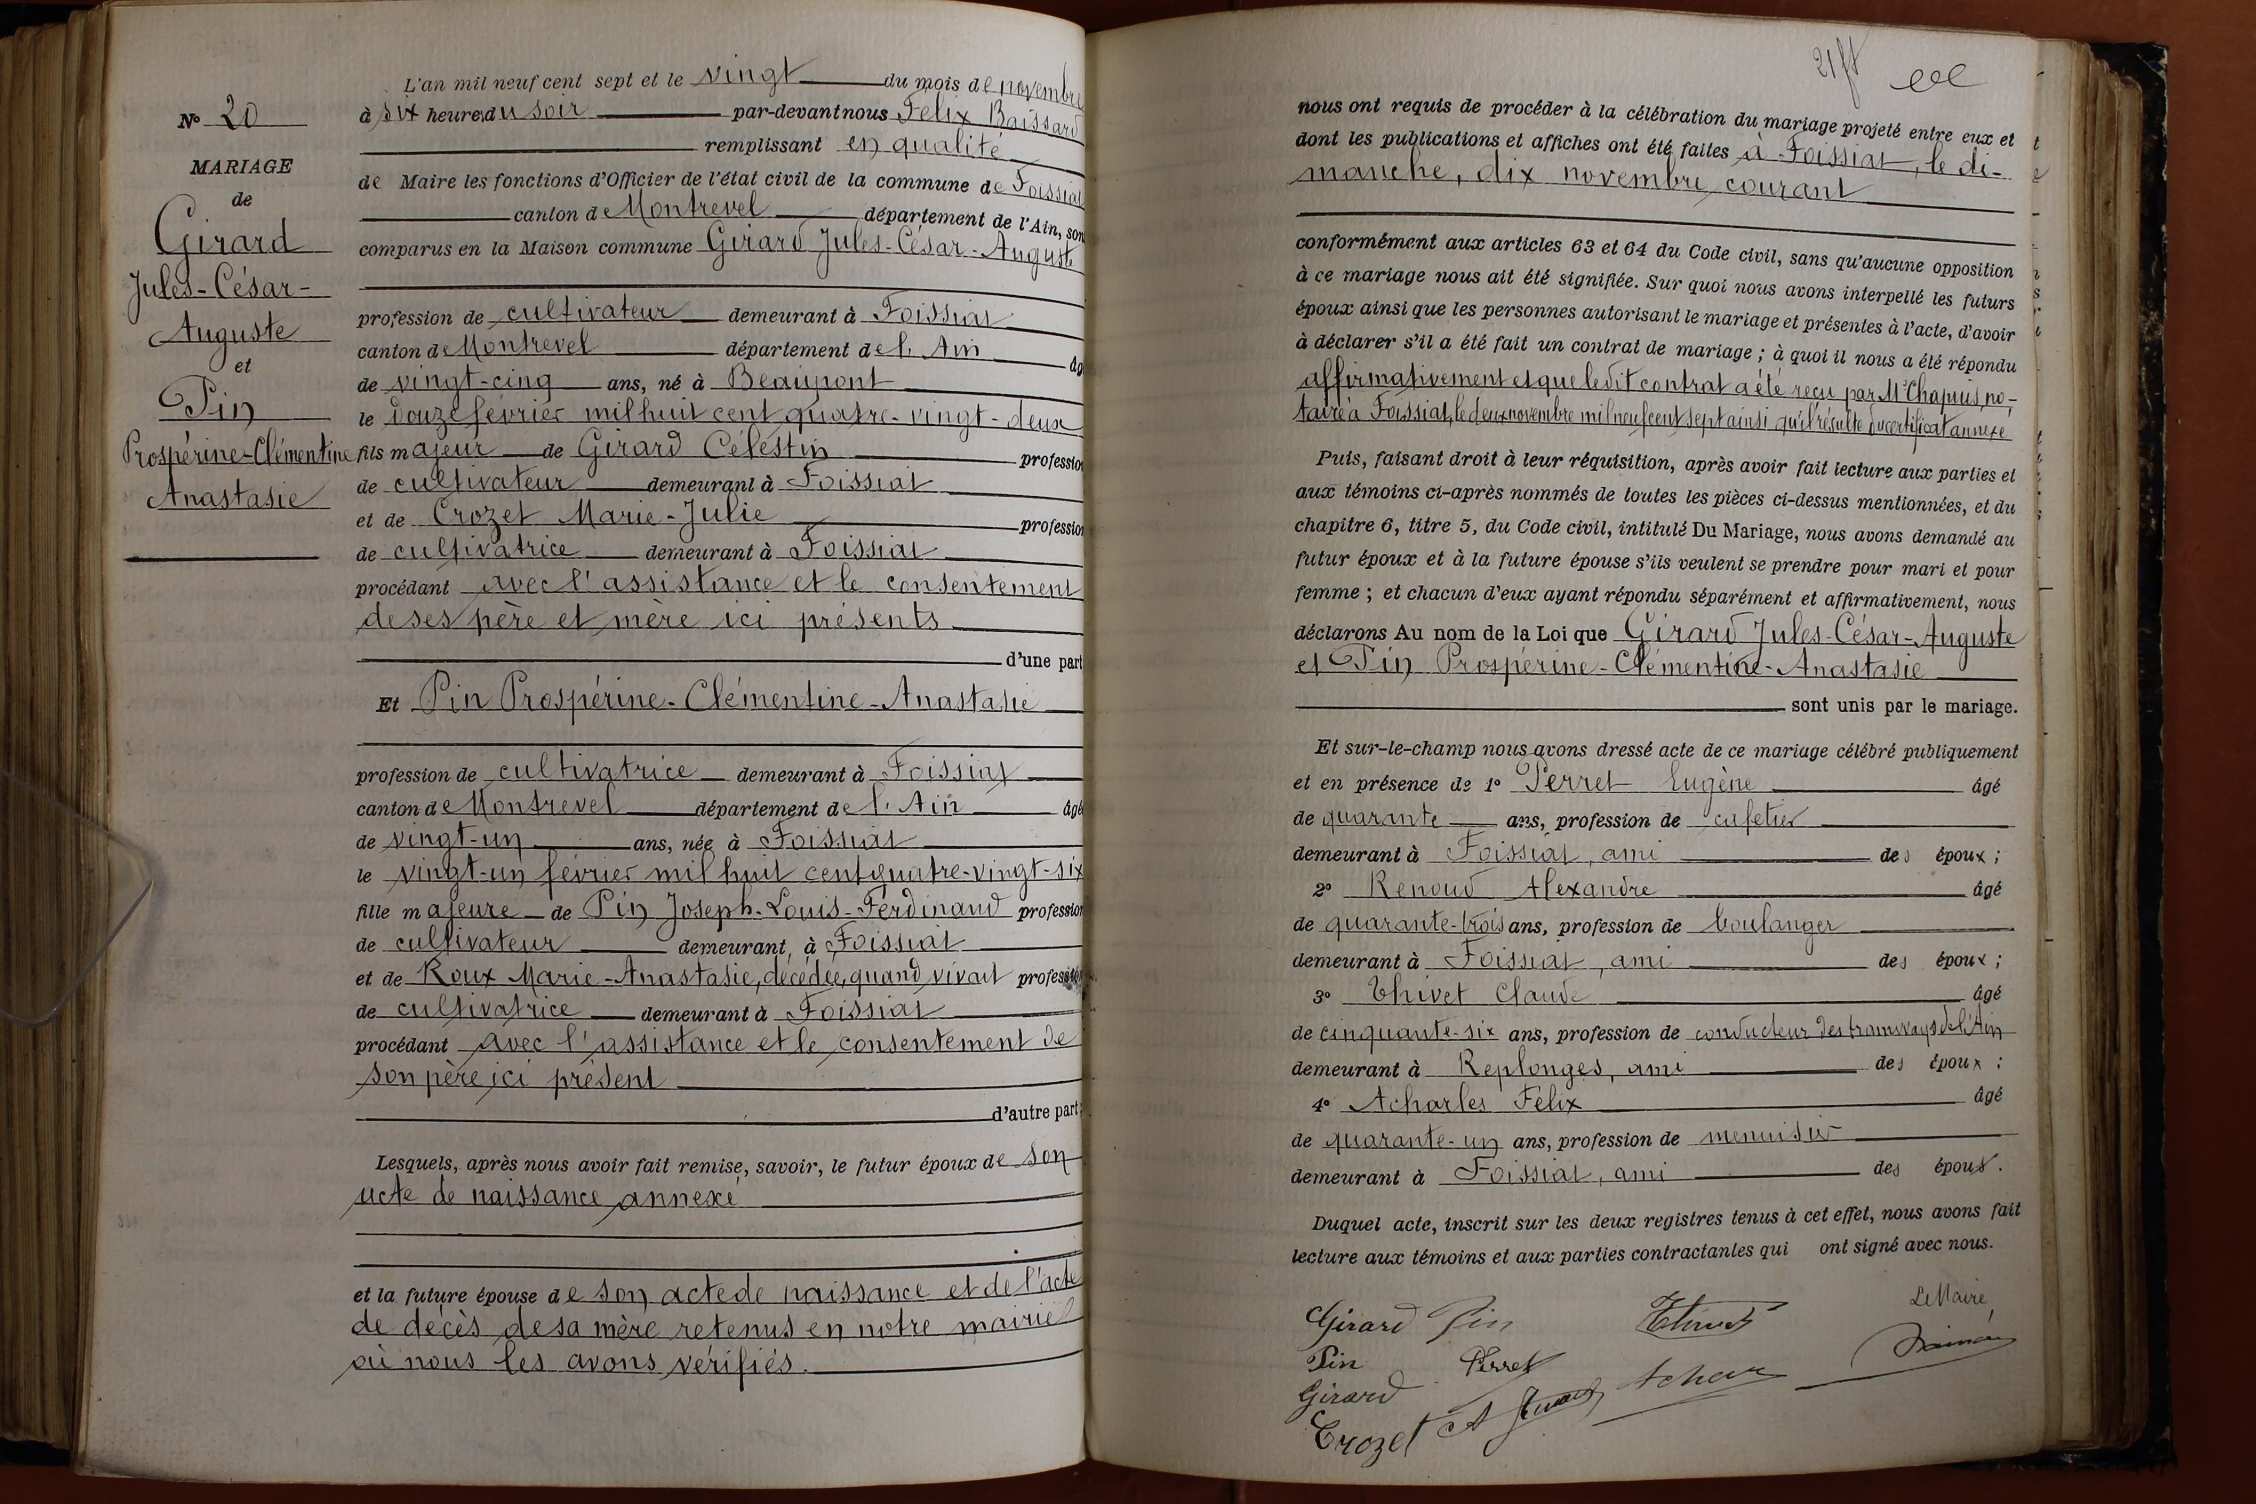 N° 20
MARIAGE
de
Girard
Jules-César-
Auguste
et
Pin
Prospérine-Clémentine
Anastasie
L'an mil neuf cent sept et le vingt du mois de novembre
à six heures du soir par-devant nous Félix Baissard
remplissant en qualité
de Maire les fonctions d'Officier de l'état civil de la commune de Foissiat
canton de Montrevel département de l'Ain, son
comparus en la Maison commune Girard Jules-César-Auguste
profession de cultivateur demeurant à Foissiat
canton de Montrevel département de l'Ain âg
de vingt-cinq ans, né à Beaupont
le douze février mil huit cent quatre-vingt-deux
fils majeur de Girard Célestin profession
de cultivateur demeurant à Foissiat
et de Crozet Marie-Julie profession
de cultivatrice demeurant à Foissiat
procédant avec l'assistance et le consentement
de ses père et mère ici présents
d'une part
Et Pin Prospérine-Clémentine-Anastasie
profession de cultivatrice demeurant à Foissiat
canton de Montrevel département de l'Ain âgé
de vingt-un ans, née à Foissiat
le vingt-un février mil huit cent quatre-vingt-six
fille majeure de Pin Joseph-Louis-Ferdinand profession
de cultivateur demeurant à Foissiat
et de Roux Marie-Anastasie, décédée, quand vivait profession
de cultivatrice demeurant à Foissiat
procédant avec l'assistance et le consentement de
son père ici présent
d'autre part;
Lesquels, après nous avoir fait remise, savoir, le futur époux de son
acte de naissance annexé
et la future épouse de son acte de naissance et de l'acte
de décès de sa mère retenus en notre mairie
où nous les avons vérifiés.
nous ont requis de procéder à la célébration du mariage projeté entre eux et
dont les publications et affiches ont été faites à Foissiat, le di-
manche, dix novembre courant
conformément aux articles 63 et 64 du Code civil, sans qu'aucune opposition
à ce mariage nous ait été signifiée. Sur quoi nous avons interpellé les futurs
époux ainsi que les personnes autorisant le mariage et présentes à l'acte, d'avoir
à déclarer s'il a été fait un contrat de mariage ; à quoi il nous a été répondu
affirmativement et que ledit contrat a été reçu par Me Chapuis, no-
taire à Foissiat, le deux novembre mil neuf cent sept ainsi qu'il résulte du certificat annexé
Puis, faisant droit à leur réquisition, après avoir fait lecture aux parties et
aux témoins ci-après nommés de toutes les pièces ci-dessus mentionnées, et du
chapitre 6, titre 5, du Code civil, intitulé Du Mariage, nous avons demandé au
futur époux et à la future épouse s'ils veulent se prendre pour mari et pour
femme ; et chacun d'eux ayant répondu séparément et affirmativement, nous
déclarons Au nom de la Loi que Girard Jules-César-Auguste
et Pin Prospérine-Clémentine-Anastasie
sont unis par le mariage.
Et sur-le-champ nous avons dressé acte de ce mariage célébré publiquement
et en présence de 1° Perret Eugène âgé
de quarante ans, profession de cafetier
demeurant à Foissiat, ami des époux ;
2° Renoud Alexandre âgé
de quarante-trois ans, profession de boulanger
demeurant à Foissiat, ami des époux ;
3° Thivet Claude âgé
de cinquante-six ans, profession de conducteur des tramways de l'Ain
demeurant à Replonges, ami des époux ;
4° Acharles Félix âgé
de quarante-un ans, profession de menuisier
demeurant à Foissiat, ami des époux.
Duquel acte, inscrit sur les deux registres tenus à cet effet, nous avons fait
lecture aux témoins et aux parties contractantes qui ont signé avec nous.
Le Maire,
Girard Pin Thivet
Pin Perret
Girard
Crozet